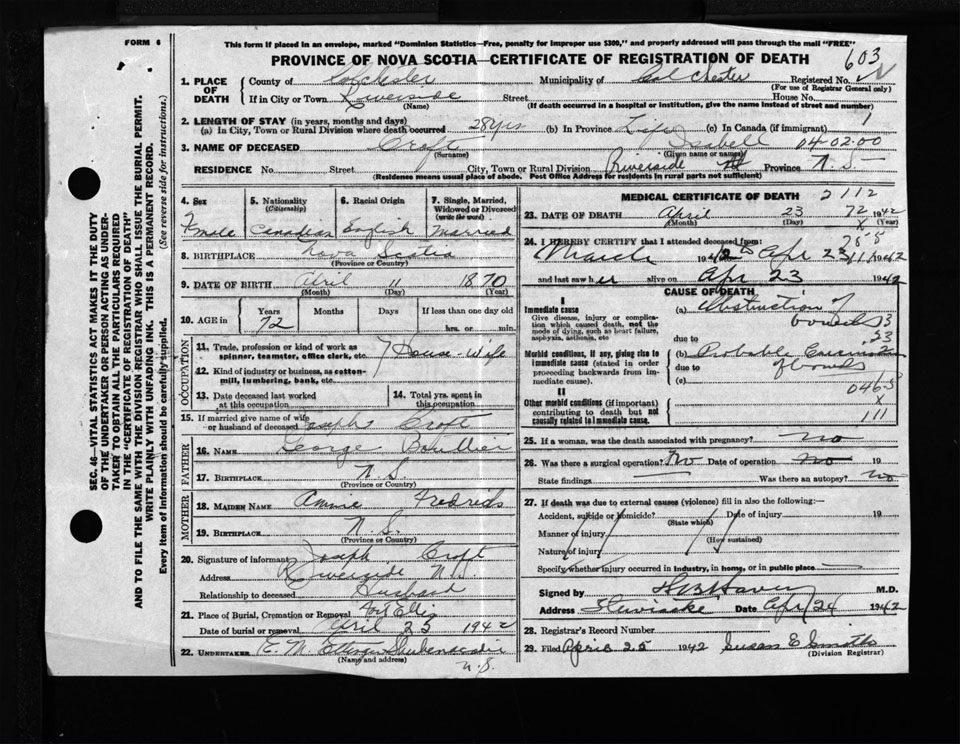 FORM 6
This form if placed in an envelope, marked "Dominion Statistics—Free, penalty for improper use $300," and properly addressed will pass through the mail "FREE"
PROVINCE OF NOVA SCOTIA—CERTIFICATE OF REGISTRATION OF DEATH
603
SEC. 46—VITAL STATISTICS ACT MAKES IT THE DUTY
OF THE UNDERTAKER OR PERSON ACTING AS UNDER-
TAKER TO OBTAIN ALL THE PARTICULARS REQUIRED
IN THE "CERTIFICATE OF REGISTRATION OF DEATH"
AND TO FILE THE SAME WITH THE DIVISION REGISTRAR WHO SHALL ISSUE THE BURIAL PERMIT.
WRITE PLAINLY WITH UNFADING INK. THIS IS A PERMANENT RECORD.
Every item of information should be carefully supplied. (See reverse side for instructions.)
1. PLACE OF DEATH County of Colchester Municipality of Colchester Registered No.
(For use of Registrar General only)
If in City or Town Riverside Street House No.
(Name) (If death occurred in a hospital or institution, give the name instead of street and number)
2. LENGTH OF STAY (in years, months and days)
(a) In City, Town or Rural Division where death occurred 28 yrs (b) In Province Life (c) In Canada (if immigrant) 1
3. NAME OF DECEASED Croft Isabell 04-02-00
(Surname) (Given name or names)
RESIDENCE No. Street City, Town or Rural Division Riverside Province N. S.
(Residence means usual place of abode. Post Office Address for residents in rural parts not sufficient)
4. Sex Female
5. Nationality (Citizenship) Canadian
6. Racial Origin English
7. Single, Married, Widowed or Divorced (write the word) Married
8. BIRTHPLACE Nova Scotia
(Province or Country)
9. DATE OF BIRTH April 11 1870
(Month) (Day) (Year)
10. AGE in Years 72 Months Days If less than one day old hrs. or min.
OCCUPATION
11. Trade, profession or kind of work as spinner, teamster, office clerk, etc. House-Wife
12. Kind of industry or business, as cotton-mill, lumbering, bank, etc.
13. Date deceased last worked at this occupation
14. Total yrs. spent in this occupation
15. If married give name of wife or husband of deceased Joseph Croft
FATHER
16. NAME George
17. BIRTHPLACE N. S.
(Province or Country)
MOTHER
18. MAIDEN NAME Annie
19. BIRTHPLACE N. S.
(Province or Country)
20. Signature of informant Joseph Croft
Address Riverside N. S
Relationship to deceased Husband
21. Place of Burial, Cremation or Removal Fort Ellis
Date of burial or removal April 25 1942
22. UNDERTAKER E. M. Shubenacadie
(Name and address) N. S.
MEDICAL CERTIFICATE OF DEATH 2112
23. DATE OF DEATH April 23 72 1942
(Month) (Day) (Year)
24. I HEREBY CERTIFY that I attended deceased from:
March 1942 to Apr 23 1942
and last saw her alive on Apr 23 1942
CAUSE OF DEATH
I
Immediate cause
Give disease, injury or complication which caused death, not the mode of dying, such as heart failure, asphyxia, asthenia, etc
(a) Obstruction of bowels
due to
Morbid conditions, if any, giving rise to immediate cause (stated in order proceeding backwards from immediate cause).
(b) Probable Carcinoma of bowels
due to
(c)
II
Other morbid conditions (if important) contributing to death but not causally related to immediate cause.
046-5
x
111
25. If a woman, was the death associated with pregnancy? no
26. Was there a surgical operation? No Date of operation no 19
State findings Was there an autopsy? no
27. If death was due to external causes (violence) fill in also the following:—
Accident, suicide or homicide? Date of injury 19
(State which)
Manner of injury
(How sustained)
Nature of injury
Specify whether injury occurred in industry, in home, or in public place
Signed by M.D.
Address Date Apr 24 1942
28. Registrar's Record Number
29. Filed April 25 1942 Susan E Smith
(Division Registrar)